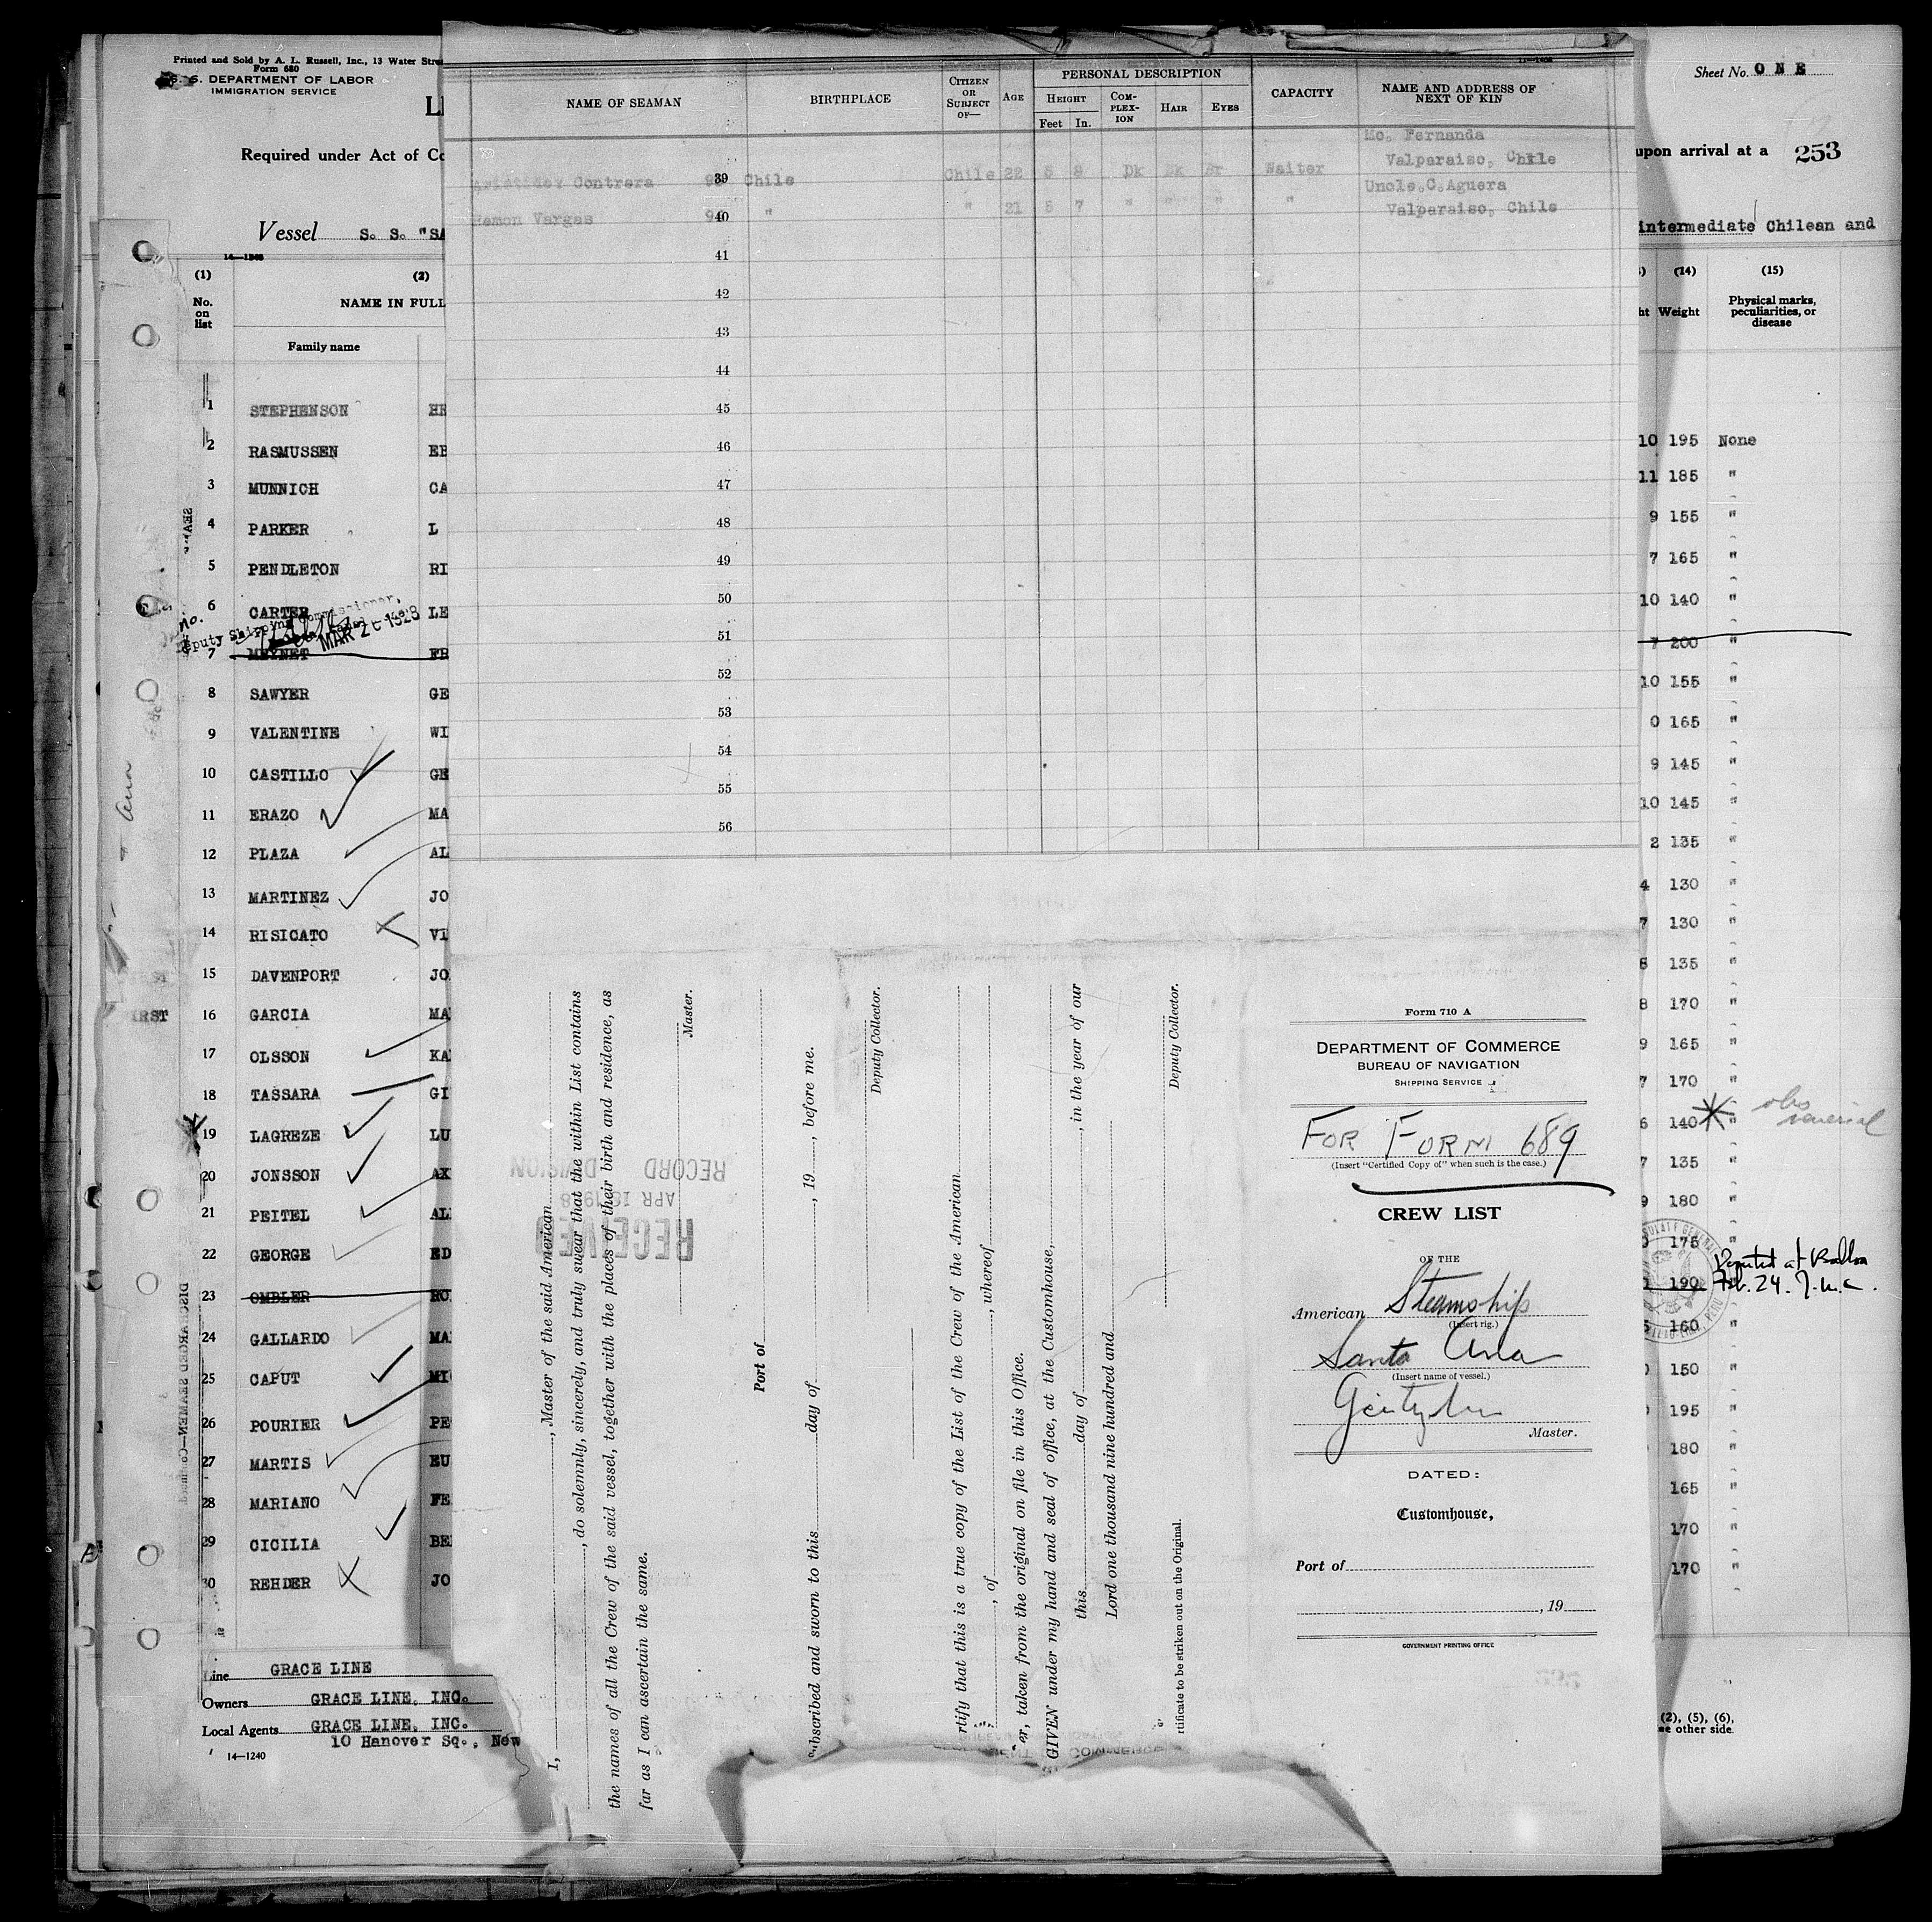 Printed and Sold by A. L. Russell, Inc., 13 Water Stre
Form 680
U. S. DEPARTMENT OF LABOR
IMMIGRATION SERVICE
LI
Required under Act of Co
Vessel S. S. "SA
14—1240
(1)
(2)
No. on list
NAME IN FULL
Family name
1 STEPHENSON HE
2 RASMUSSEN EE
3 MUNNICH CA
4 PARKER L
5 PENDLETON RI
6 CARTER LE
Deputy Shipping Commissioner,
MAR 26 1928
7 MEYNET FR
8 SAWYER GE
9 VALENTINE WI
10 CASTILLO GE
11 ERAZO MA
12 PLAZA AL
13 MARTINEZ JO
14 RISICATO VI
15 DAVENPORT JO
16 GARCIA MA
17 OLSSON KA
18 TASSARA GI
19 LAGREZE LU
20 JONSSON AX
21 PEITEL AL
22 GEORGE ED
23 OMBLER RO
24 GALLARDO MA
25 CAPUT MI
26 POURIER PE
27 MARTIS EU
28 MARIANO FE
29 CICILIA BE
30 REHDER JO
Line GRACE LINE
Owners GRACE LINE, INC.
Local Agents GRACE LINE, INC.
10 Hanover Sq., New
14—1240
NAME OF SEAMAN
BIRTHPLACE
CITIZEN OR SUBJECT OF—
AGE
PERSONAL DESCRIPTION
HEIGHT
Feet In.
COM-PLEX-ION
HAIR
EYES
CAPACITY
NAME AND ADDRESS OF NEXT OF KIN
Mo. Fernanda
Contrera 39 Chile Chile 22 5 8 Dk Bk Br Waiter Valparaiso, Chile
Uncle.C.Aguera
Ramon Vargas 40 " " 21 5 7 " " " " Valparaiso, Chile
41
42
43
44
45
46
47
48
49
50
51
52
53
54
55
56
I, , Master of the said American
, do solemnly, sincerely, and truly swear that the within List contains
the names of all the Crew of the said vessel, together with the places of their birth and residence, as
far as I can ascertain the same.
Master.
RECEIVED
APR 1928
RECORD DIVISION
Port of
bscribed and sworn to this day of , 19 , before me.
Deputy Collector.
rtify that this is a true copy of the List of the Crew of the American
, of , whereof
er, taken from the original on file in this Office.
GIVEN under my hand and seal of office, at the Customhouse,
this day of , in the year of our
Lord one thousand nine hundred and
Deputy Collector.
rtificate to be striken out on the Original.
Form 710 A
DEPARTMENT OF COMMERCE
BUREAU OF NAVIGATION
SHIPPING SERVICE
FOR FORM 689
(Insert "Certified Copy of" when such is the case.)
CREW LIST
OF THE
American Steamship
(Insert rig.)
Santa Ana
(Insert name of vessel.)
Master.
DATED:
Customhouse,
Port of
, 19
GOVERNMENT PRINTING OFFICE
Sheet No. ONE
upon arrival at a 253
intermediate Chilean and
(14)
(15)
ht Weight
Physical marks, peculiarities, or disease
10 195 None
11 185 "
9 155 "
7 165 "
10 140 "
7 200 "
10 155 "
0 165 "
9 145 "
10 145 "
2 135 "
4 130 "
7 130 "
135 "
8 170 "
9 165 "
7 170 "
6 140
7 135 "
9 180 "
175
190 Deported at Balboa
Feb. 24. J.M.C.
160
150 "
195 "
180 "
165 "
170 "
170 "
(2), (5), (6),
e other side.